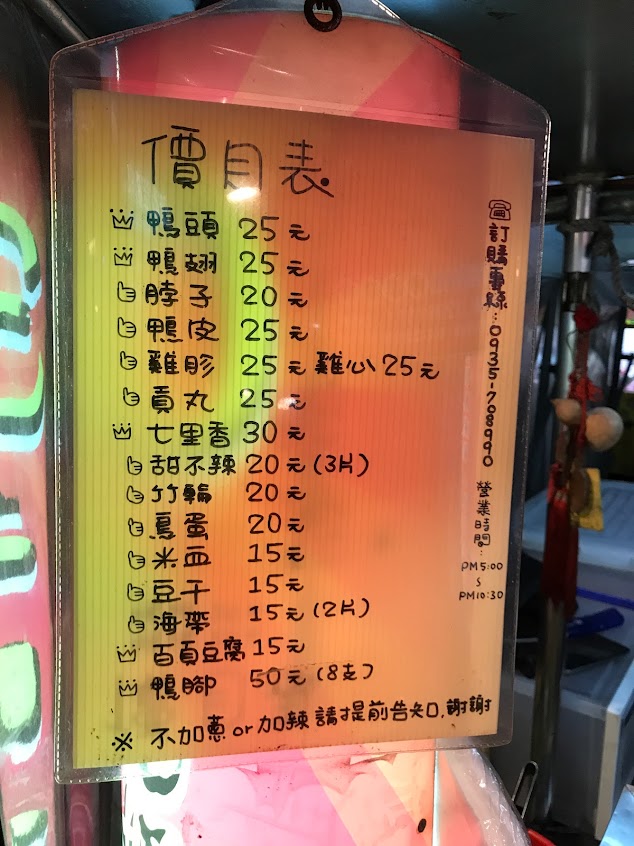 價目表
鴨頭 25元
鴨翅 25元
脖子 20元
鴨皮 25元
雞胗 25元 雞心25元
貢丸 25元
七里香 30元
甜不辣 20元(3片)
竹輪 20元
鳥蛋 20元
米血 15元
豆干 15元
海帶 15元(2片)
百頁豆腐 15元
鴨腳 50元(8支)
※ 不加蔥or加辣請提前告知,謝謝
☏訂購專線:0935-708990
營業時間:
PM5:00
~
PM10:30